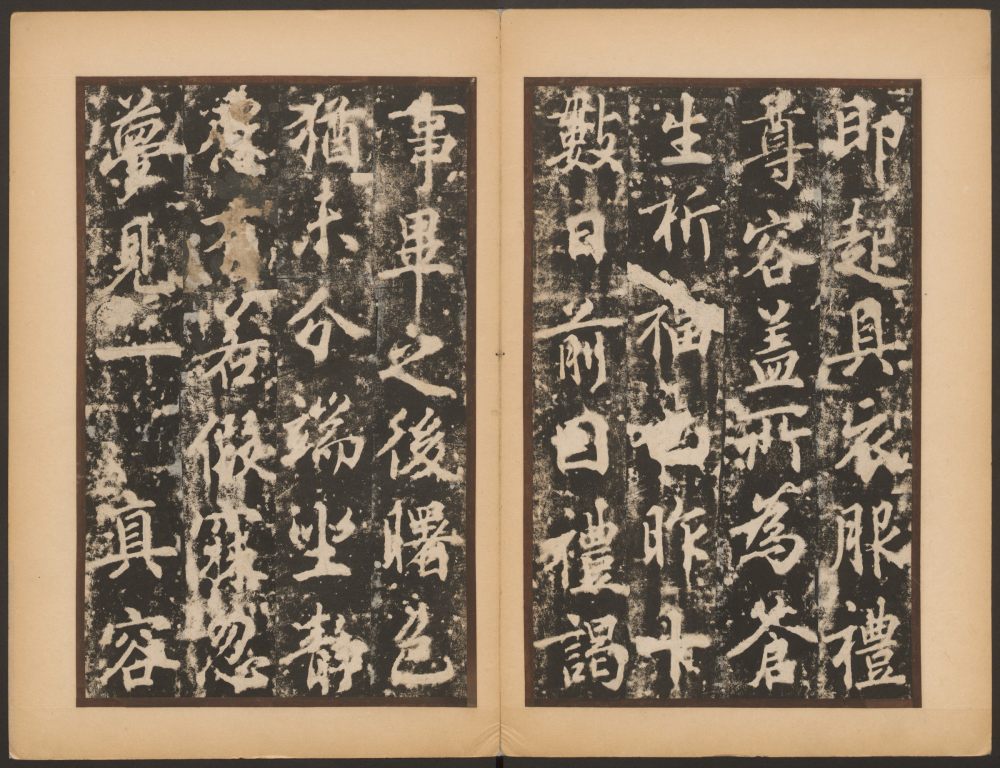 即起具衣服禮
尊容蓋所為蒼
生祈福也昨十
數日前因禮謁
事畢之後曙色
猶未分端坐靜
慮有若假寐忽
夢見一真容